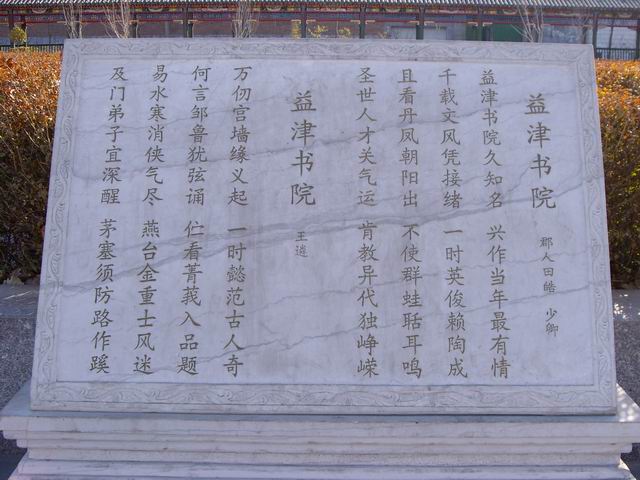 益津书院
郡人田皓 少卿
益津书院久知名 兴作当年最有情
千载文风凭接绪 一时英俊赖陶成
且看丹凤朝阳出 不使群蛙聒耳鸣
圣世人才关气运 肯教异代独峥嵘
益津书院
王遴
万仞宫墙缘义起 一时懿范古人奇
何言邹鲁犹弦诵 伫看菁莪入品题
易水寒消侠气尽 燕台金重士风迷
及门弟子宜深醒 茅塞须防路作蹊